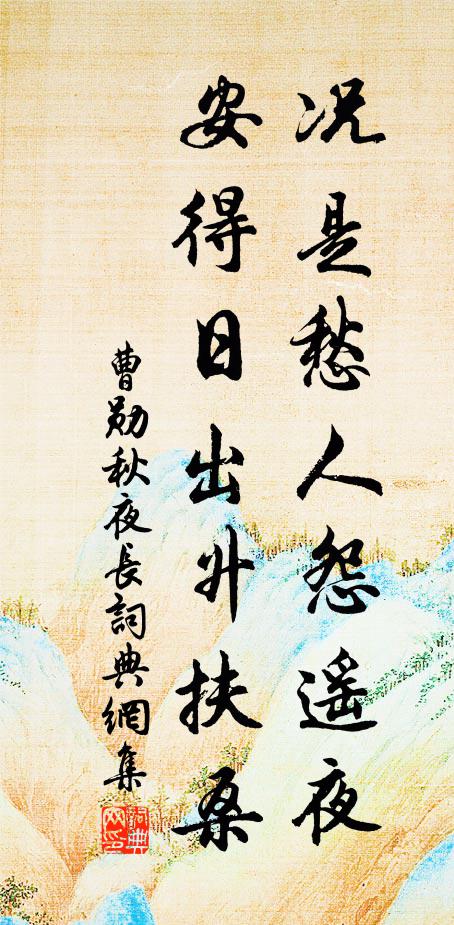 况是愁人怨遥夜
安得日出升扶桑
曹勋秋夜长詞典網集
詞典
网印